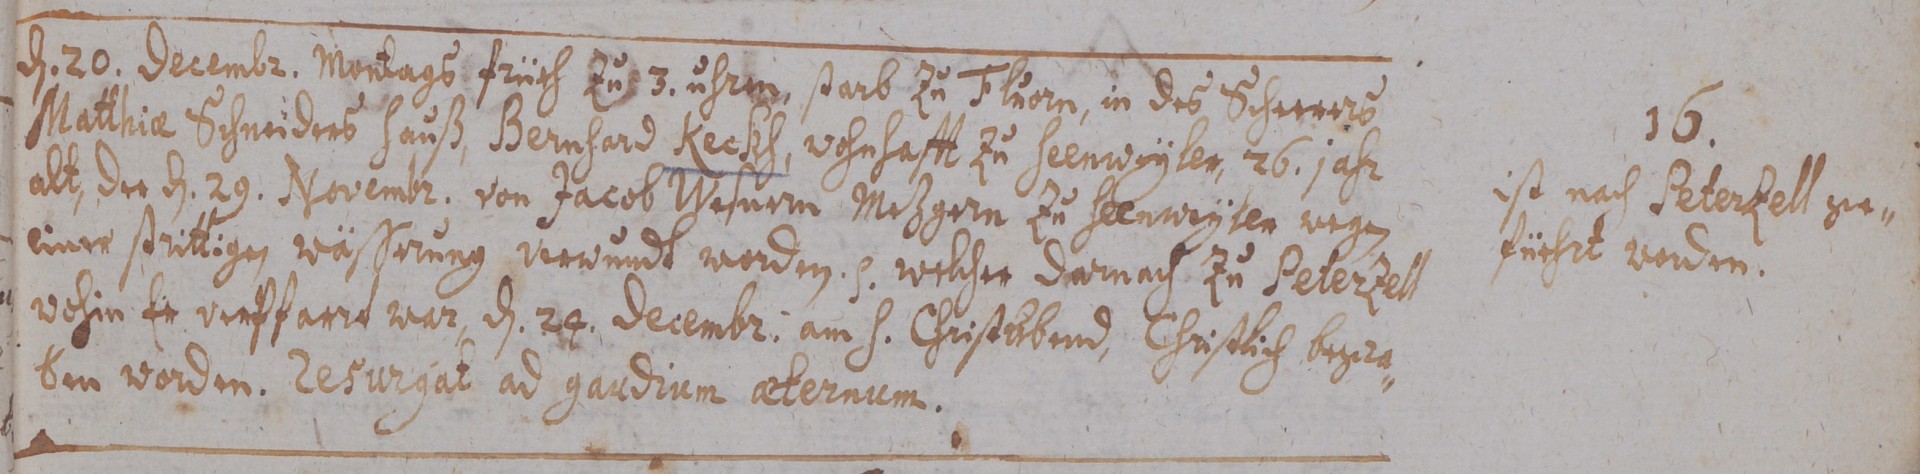 d. 20. Decembr. Montags früeh zu 3. uhren, starb zu Fluorn, in des Scherers
Matthiæ Schneiders hauß, Bernhard Keckh, wohnhafft zu Heenweyler, 26. jahr
alt, der d. 29. Novembr. von Jacob Mezgern zu Heenweyler wegen
einer strittigen wässerung verwundt worden. welcher darnach zu Peterzell
wohin er verpfarrt war, d. 24. Decembr. am h. Christabend, Christlich begra-
ben worden. Resurgat ad gaudium æternum.
16.
ist nach Peterzell ge-
füehrt worden.